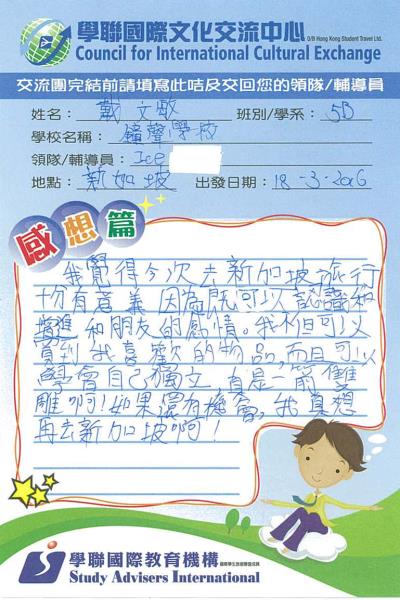 學聯國際文化交流中心 O/B Hong Kong Student Travel Ltd.
Council for International Cultural Exchange
交流團完結前請填寫此咭及交回您的領隊/輔導員
姓名: 戴文敏 班別/學系: 5B
學校名稱: 鐘聲學校
領隊/輔導員: Ice
地點: 新加坡 出發日期: 18-3-2016
感想篇
我覺得今次去新加坡旅行
十份有意義,因為既可以認識和
增進和朋友的感情。我不但可以
買到我喜歡的物品,而且可以
學會自己獨立,真是一箭雙
雕啊!如果還有機會,我真想
再去新加坡啊!
學聯國際教育機構
Study Advisers International